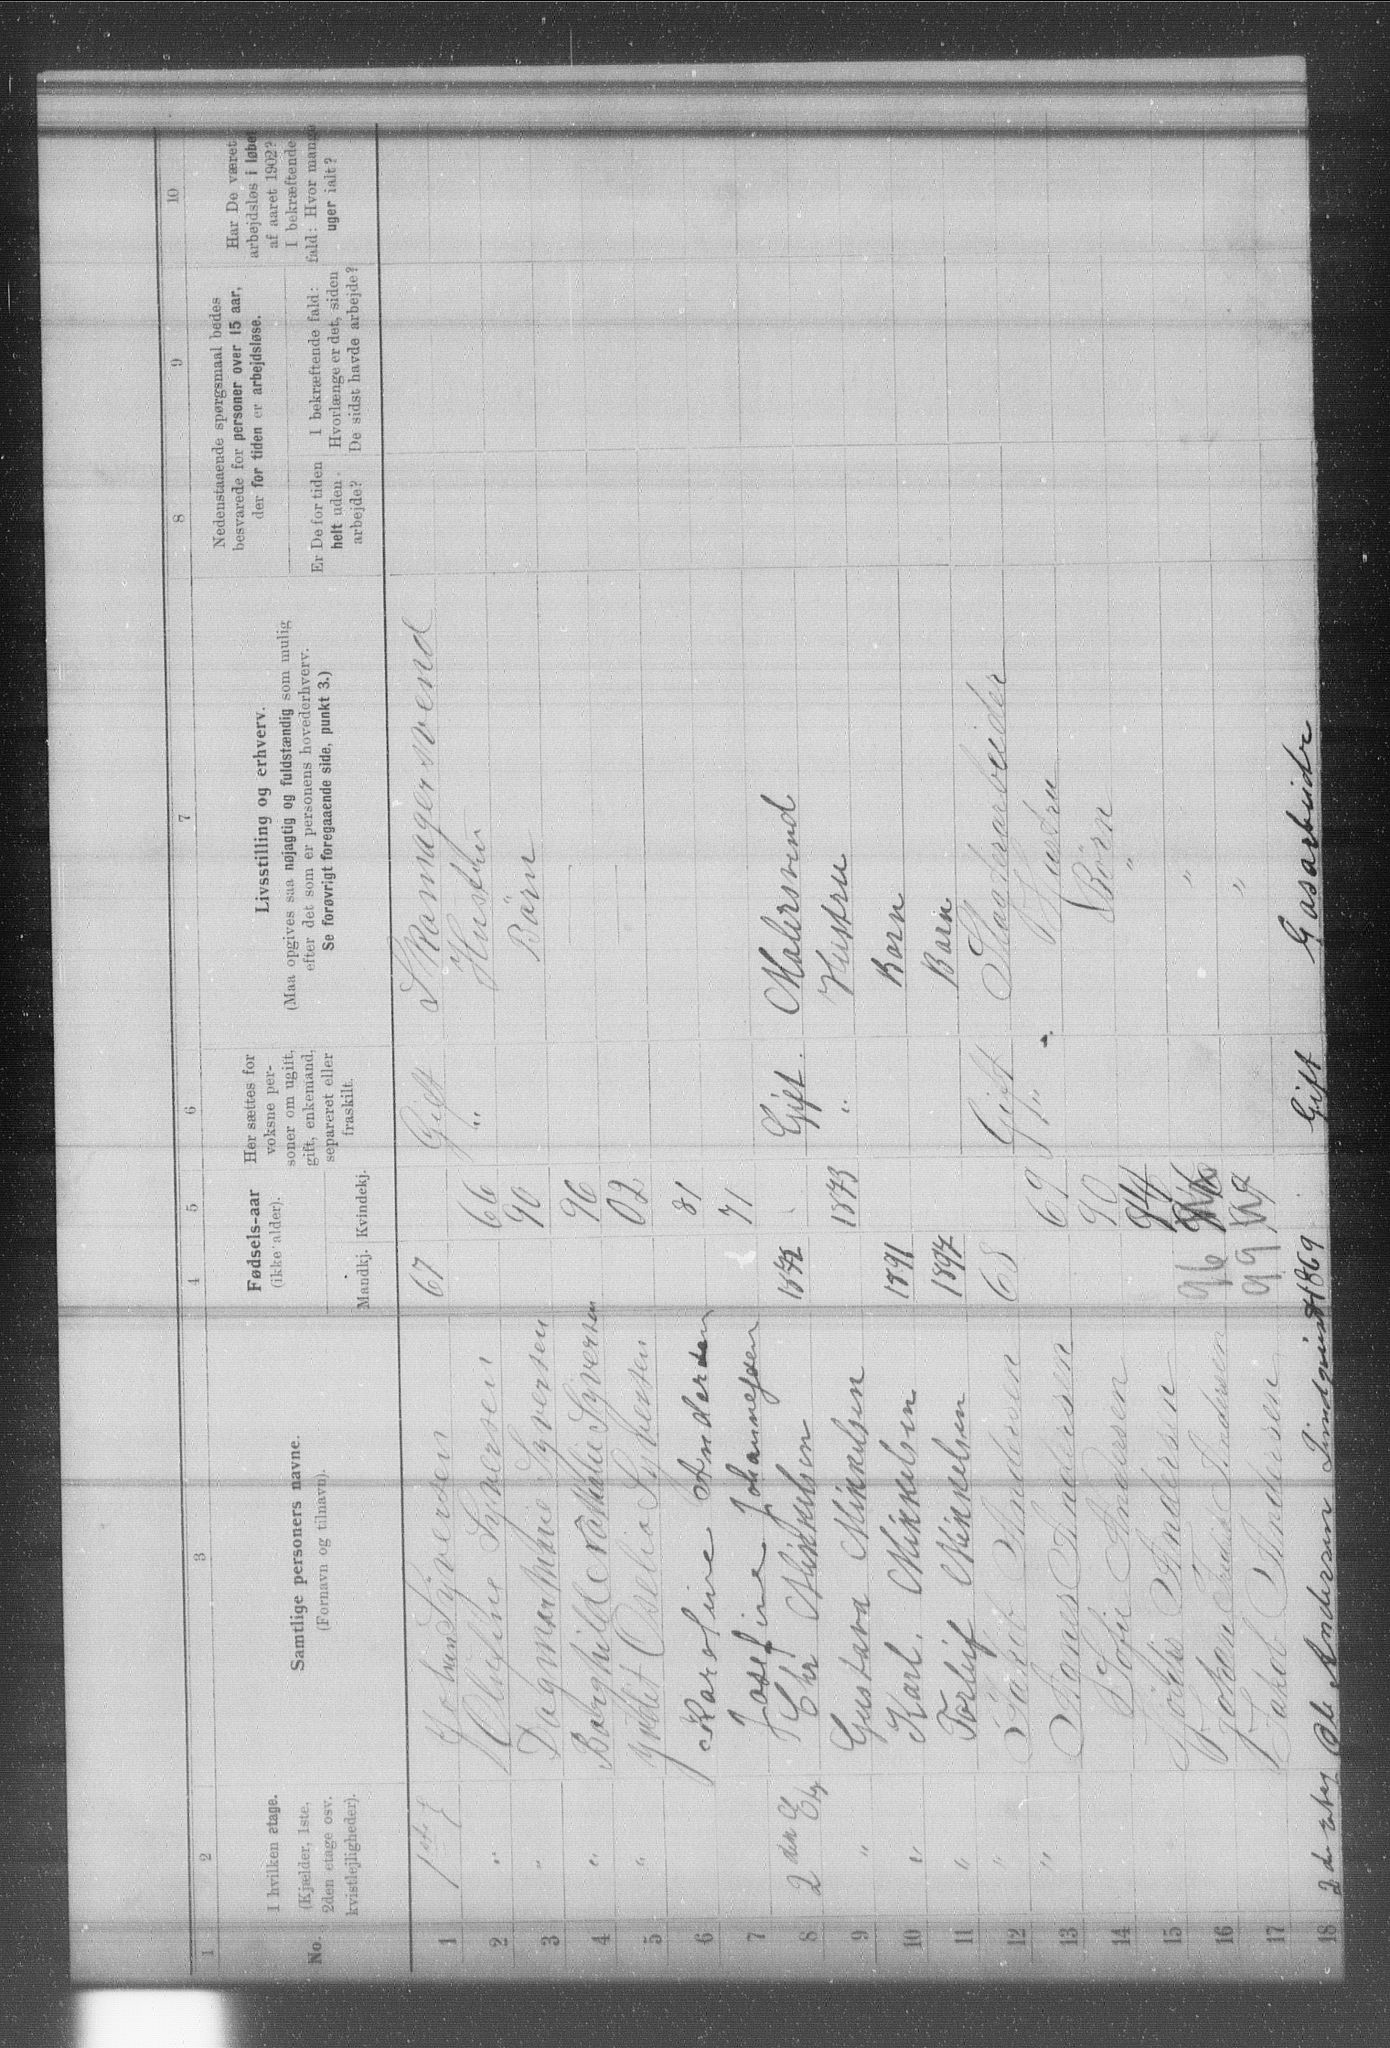 1 2 3 4 5 6 7 8 9 10
No. I hvilken etage. (Kjælder, 1ste, 2den etage osv. kvistlejligheder).
Samtlige personers navne.
(Fornavn og tilnavn).
Fødsels-aar
(ikke alder).
Mandkj. Kvindekj.
Her sættes for
voksne per-
soner om ugift,
gift, enkemand,
separeret eller
fraskilt.
Livsstilling og erhverv.
(Maa opgives saa nøjagtig og fuldstændig som mulig
efter det som er personens hovederhverv.
Se forøvrigt foregaaende side, punkt 3.)
Nedenstaaende spørgsmaal bedes
besvarede for personer over 15 aar,
der for tiden er arbejdsløse.
Er De for tiden
helt uden
arbejde?
I bekræftende fald:
Hvorlænge er det, siden
De sidst havde arbejde?
Har De været
arbejdsløs i løbet
af aaret 1902?
I bekræftende
fald: Hvor mange
uger ialt?
1 1ste E Johan Syversen 67 Gift Skomagersvend
2 " Olufine Syversen 66 " Hustru
3 " Dagmar Marie Syversen 90 Børn
4 " Borghild Nathalie Syversen 96
5 " Syversen 02
6 Karoline Andersen 81
7 Josefine Johannesen 71
8 2den Etg Chr Mikkelsen 1872 Gift. Malersvend
9 " Gustava Mikkelsen 1873 " Hustru
10 " Karl. Mikkelsen 1891 Barn
11 " Torleif Mikkelsen 1897 Barn
12 " Jakob Andersen 68 Gift Slagterarbeider
13 " Andersen 69 " Hustru
14 Sofie Andersen 90 Børn
15 Andersen 94 "
16 Johan Andersen 96 "
17 Jakob Andersen 99 "
18 2de etag Andersen Lindquist 1869 Gift Gasarbeider